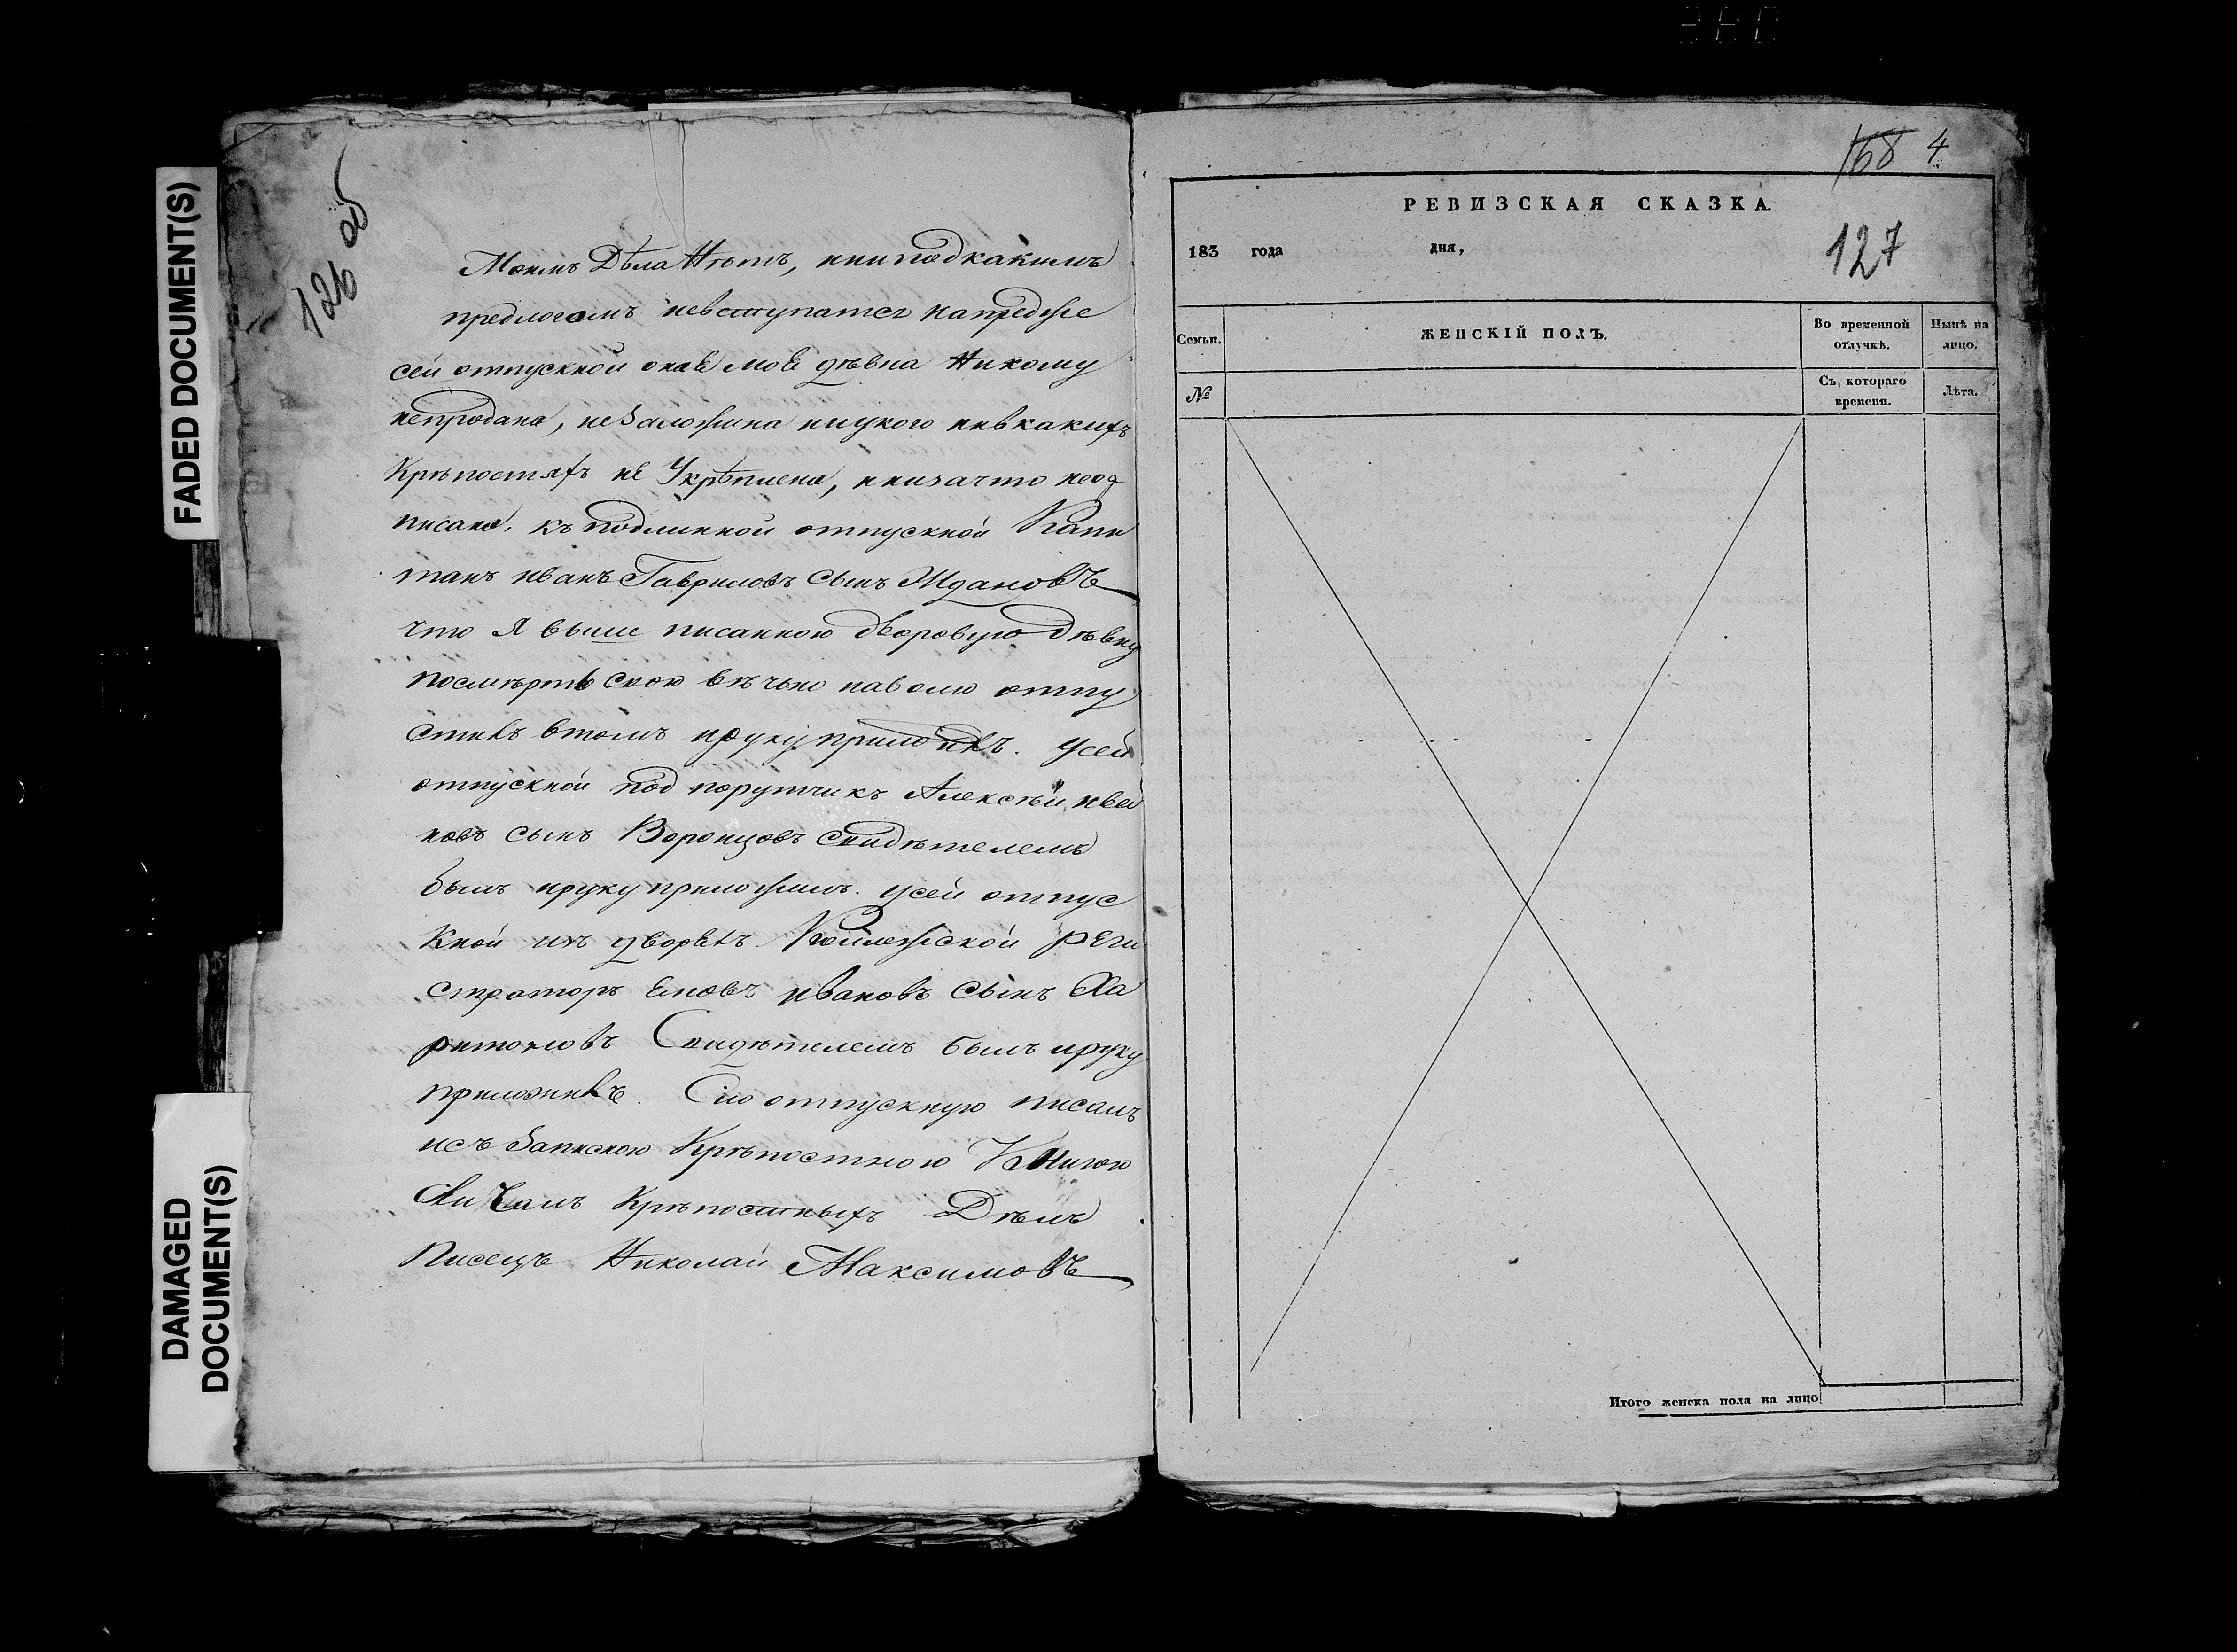 FADED DOCUMENT(S)
DAMAGED
DOCUMENT(S)
126 об
Моимъ Дѣла Нѣтъ, ини подкакимъ
предлогомъ невступатся напредь же
сей отпускной онае моя дѣвка Никому
непродана, не заложина ниукого нивкакихъ
Крѣпостяхъ не Укрѣплена, нинизачто неот
писана. къ подлинной отпускной Капи
танъ иванъ Гавриловъ сынъ Ждановъ
что я выше писанною дворовую дѣвку
посмѣрть свою вѣчьно наволю отпу
стилъ втомъ ируку приложилъ. Усей
отпускной под порутчикъ Алексѣй ива
новъ сынъ Воронцовъ свидѣтелемъ
былъ ируку приложилъ. усей отпус
кной изъ дворянъ Колежской реги
страторъ ивановъ сынъ Ха
ритоновъ Свидѣтелемъ былъ ируку
приложилъ. Сию отпускную писалъ
исъ Запискою Крѣпостною Книгою
Сличалъ Крѣпостныхъ Дѣлъ
Писецъ Николай Максимовъ
168 4
РЕВИЗСКАЯ СКАЗКА.
183 года дня,
127
Семьи. ЖЕНСКІЙ ПОЛЪ. Во временной отлучкѣ. Нынѣ на лицо.
№ Съ котораго времени. Лѣта.
Итого женска пола на лицо